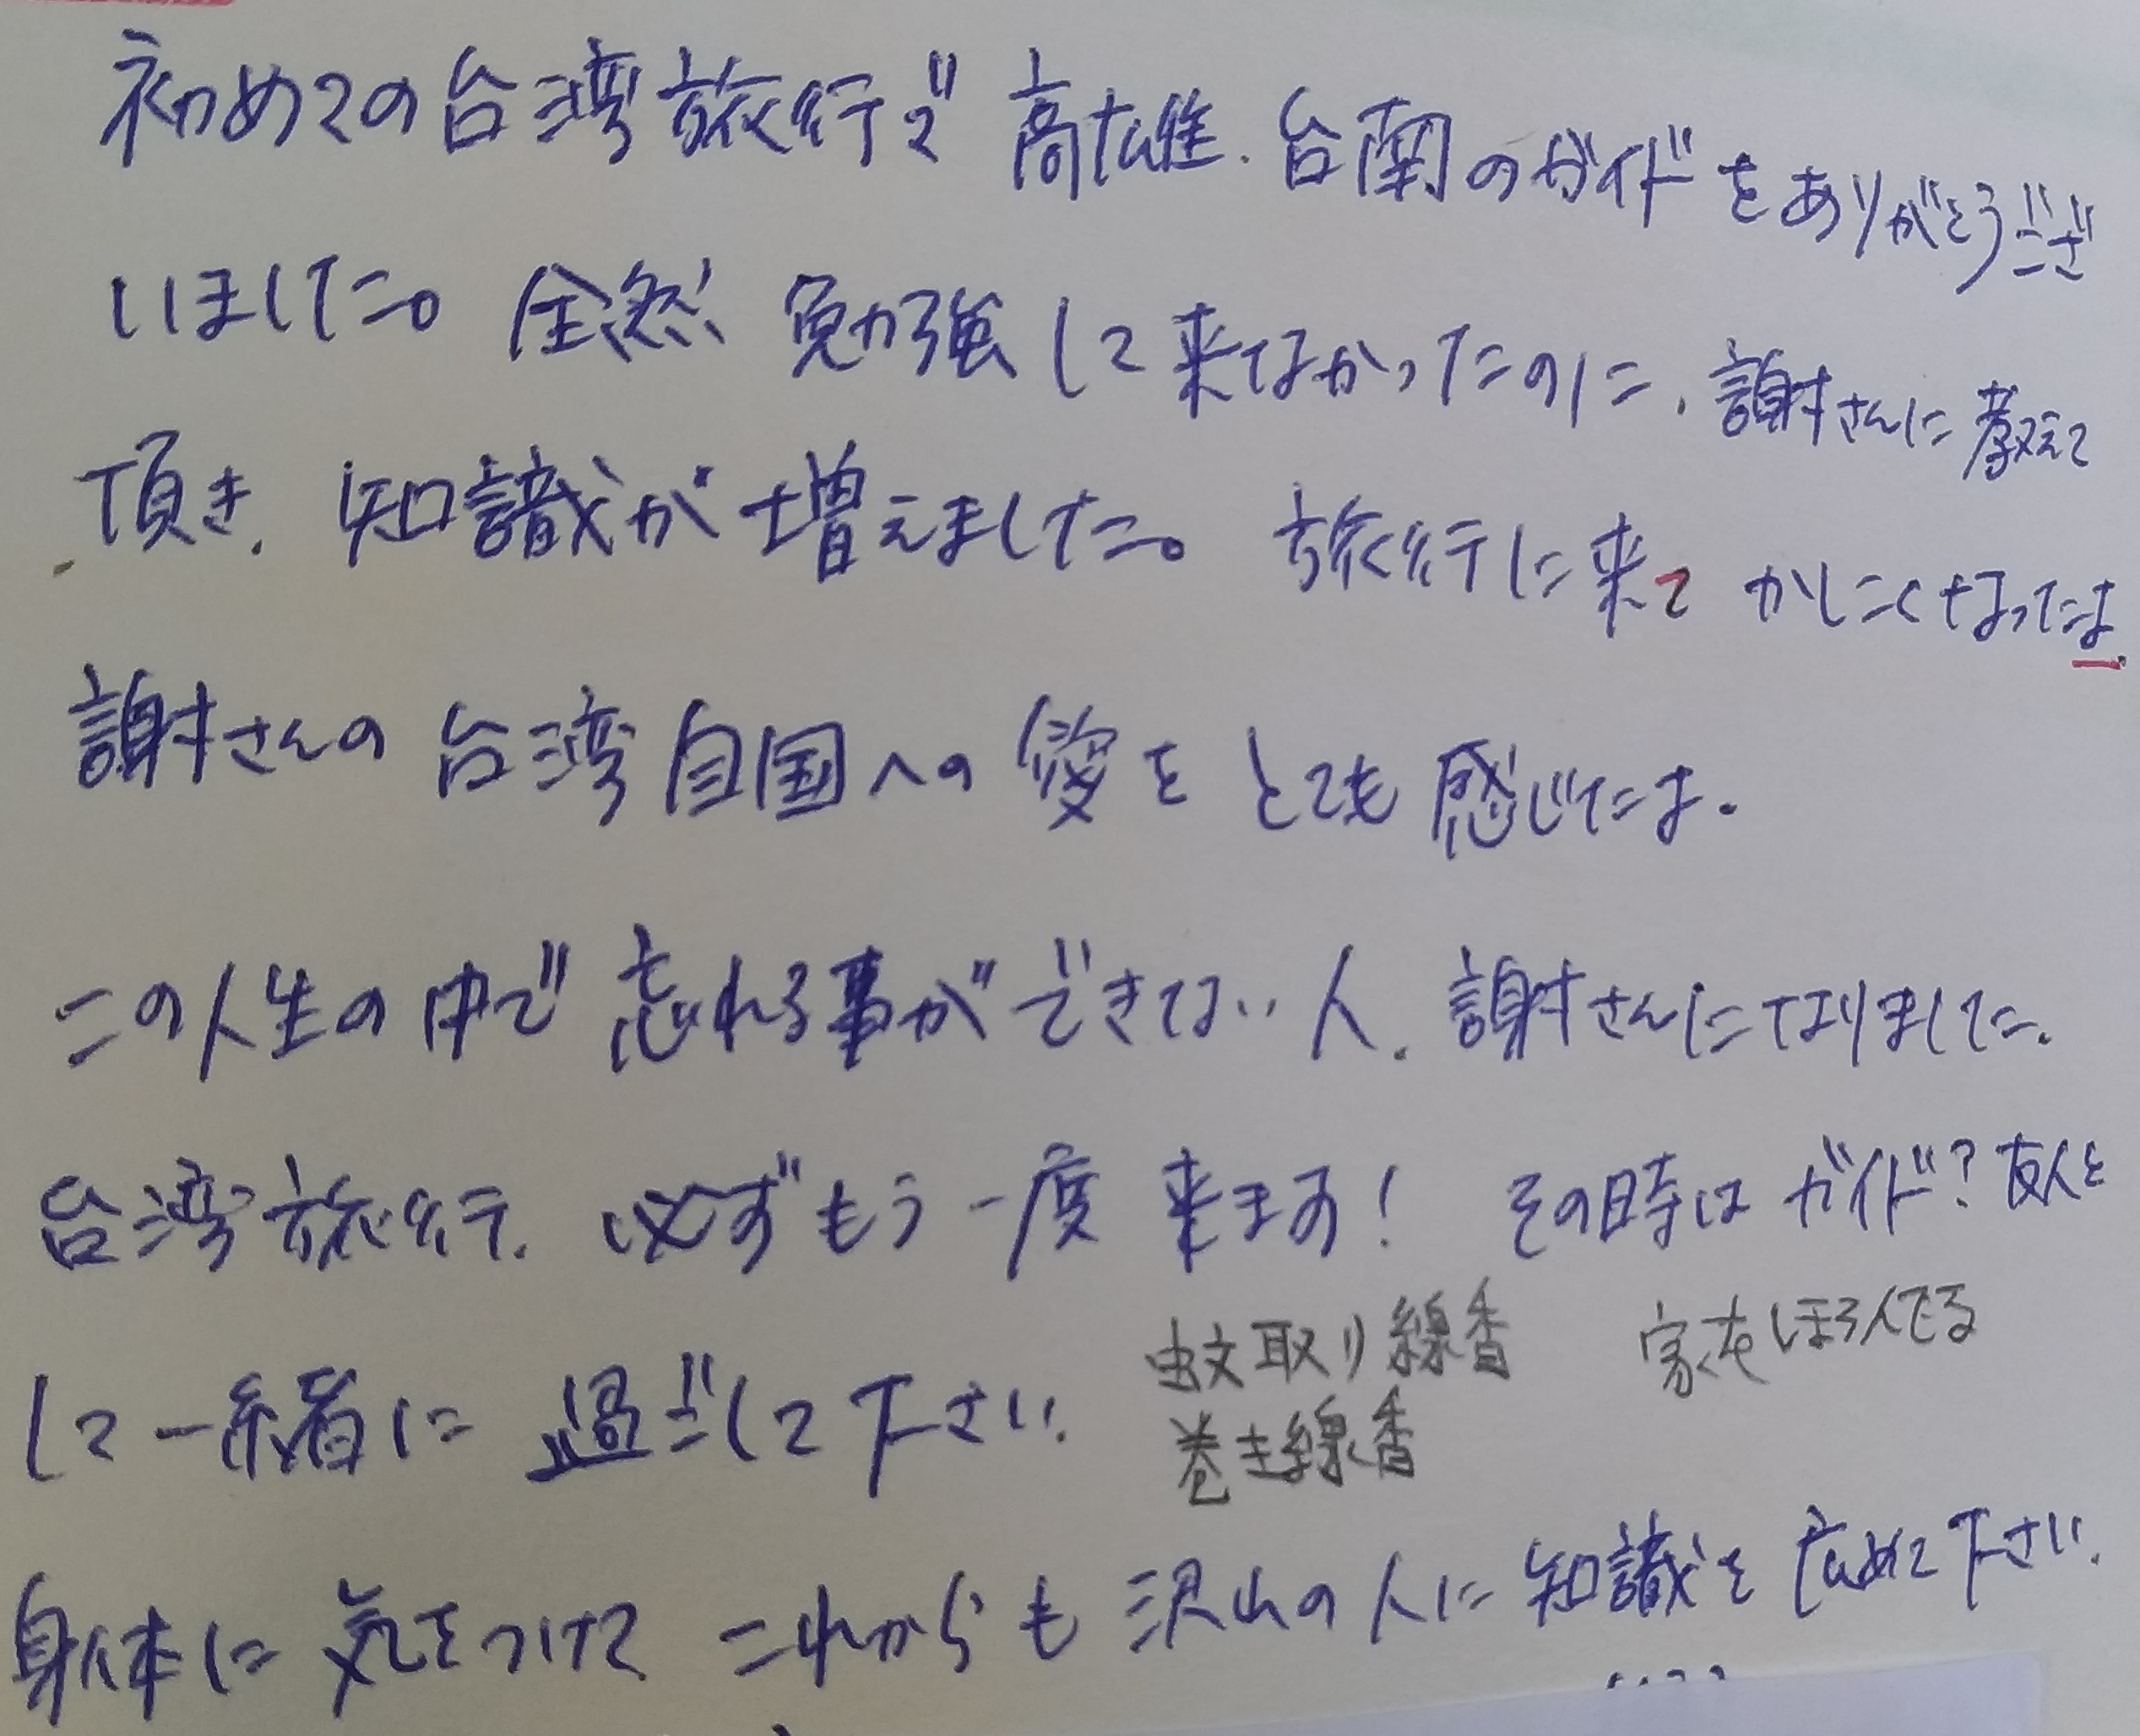 初めての台湾旅行で高雄、台南のガイドをありがとうござ
いました。全然勉強して来なかったのに、謝さんに教えて
頂き、知識が増えました。旅行に来てかしこくなったよ。
謝さんの台湾自国への愛をとても感じたよ。
この人生の中で忘れる事ができない人、謝さんになりました。
台湾旅行、必ずもう一度来ます！その時はガイド？友人と
して一緒に過ごして下さい。
蚊取り線香
巻き線香
身体に気をつけてこれからも沢山の人に知識を広めて下さい。